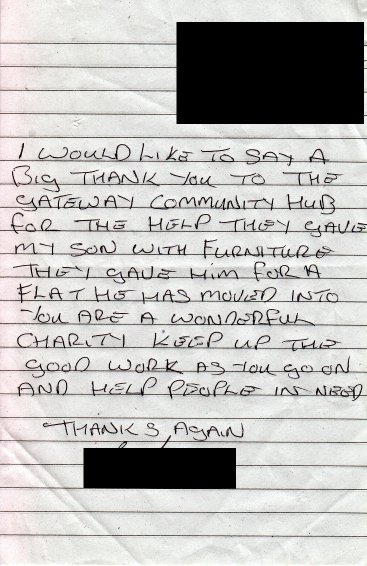 I WOULD LIKE TO SAY A
BIG THANK YOU TO THE
GATEWAY COMMUNITY HUB
FOR THE HELP THEY GAVE
MY SON WITH FURNITURE
THEY GAVE HIM FOR A
FLAT HE HAS MOVED INTO
YOU ARE A WONDERFUL
CHARITY KEEP UP THE
GOOD WORK AS YOU GO ON
AND HELP PEOPLE IN NEED
THANKS AGAIN